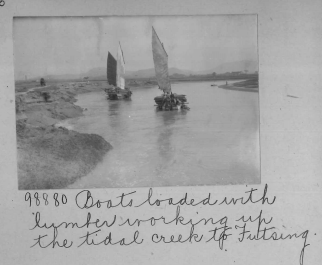 98880 Boats loaded with
lumber working up
the tidal creek to Futsing.